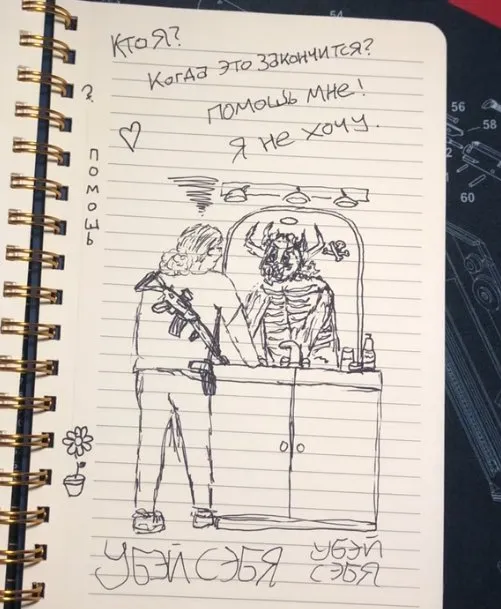 Кто я?
Когда это закончится?
помошь мне!
Я не хочу.
?
помошь
убэй сэбя
убэй
сэбя
56
58
60
54